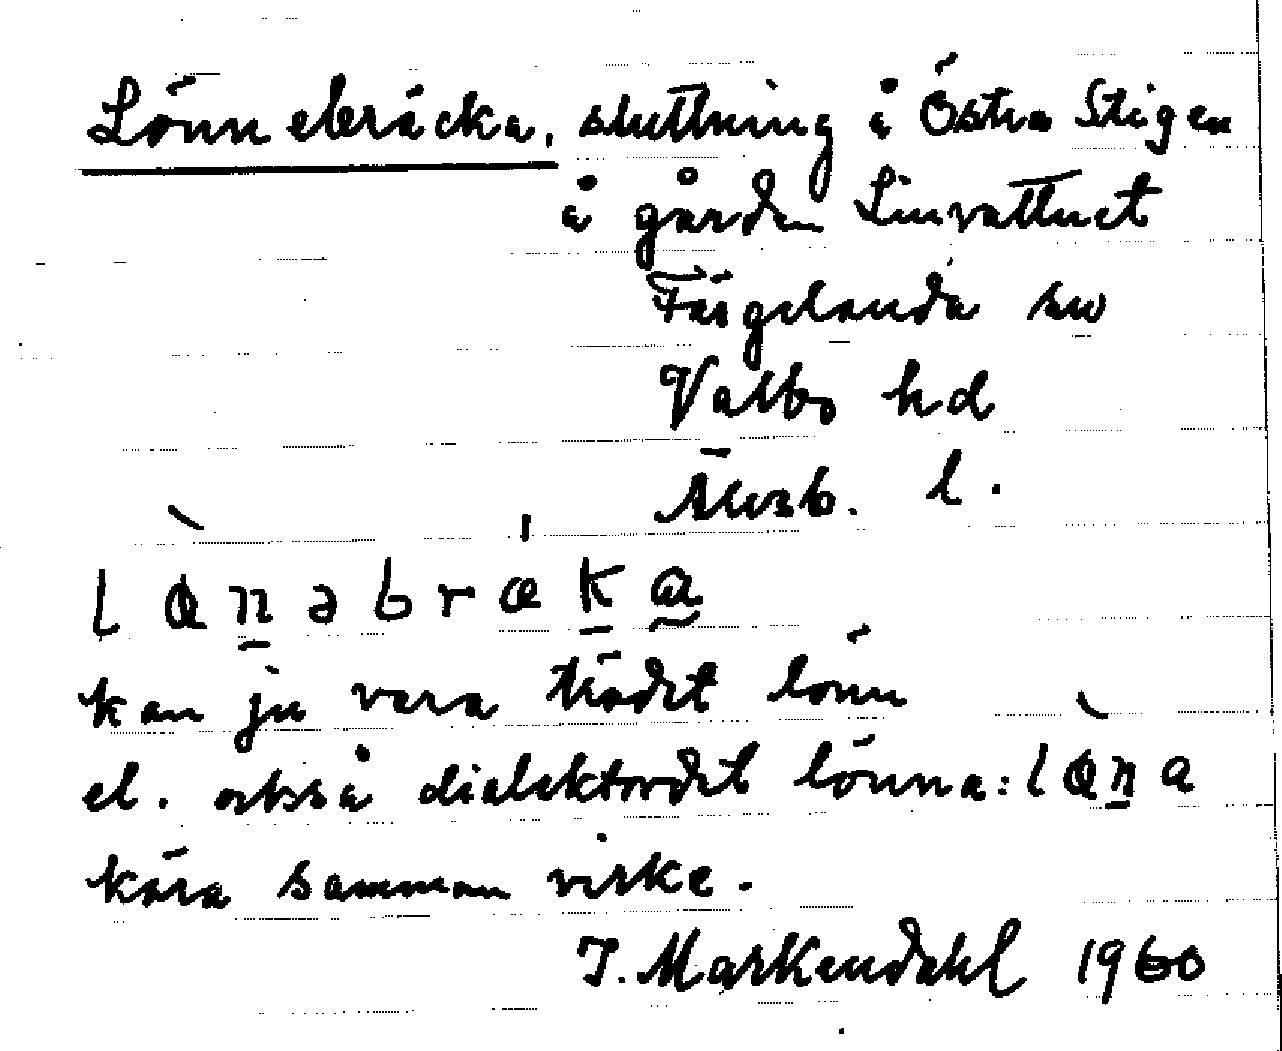 Lönnebräcka, sluttning å Östra Stigen
å gården Linvattnet
Färgelanda sn
Valbo hd
Älvsb. l.
lø̀n̲əbræˈk̲a̰
kan ju vara trädet lönn
el. också dialektordet lönna: lø̀n̲a
köra samman virke.
I. Markendahl 1960